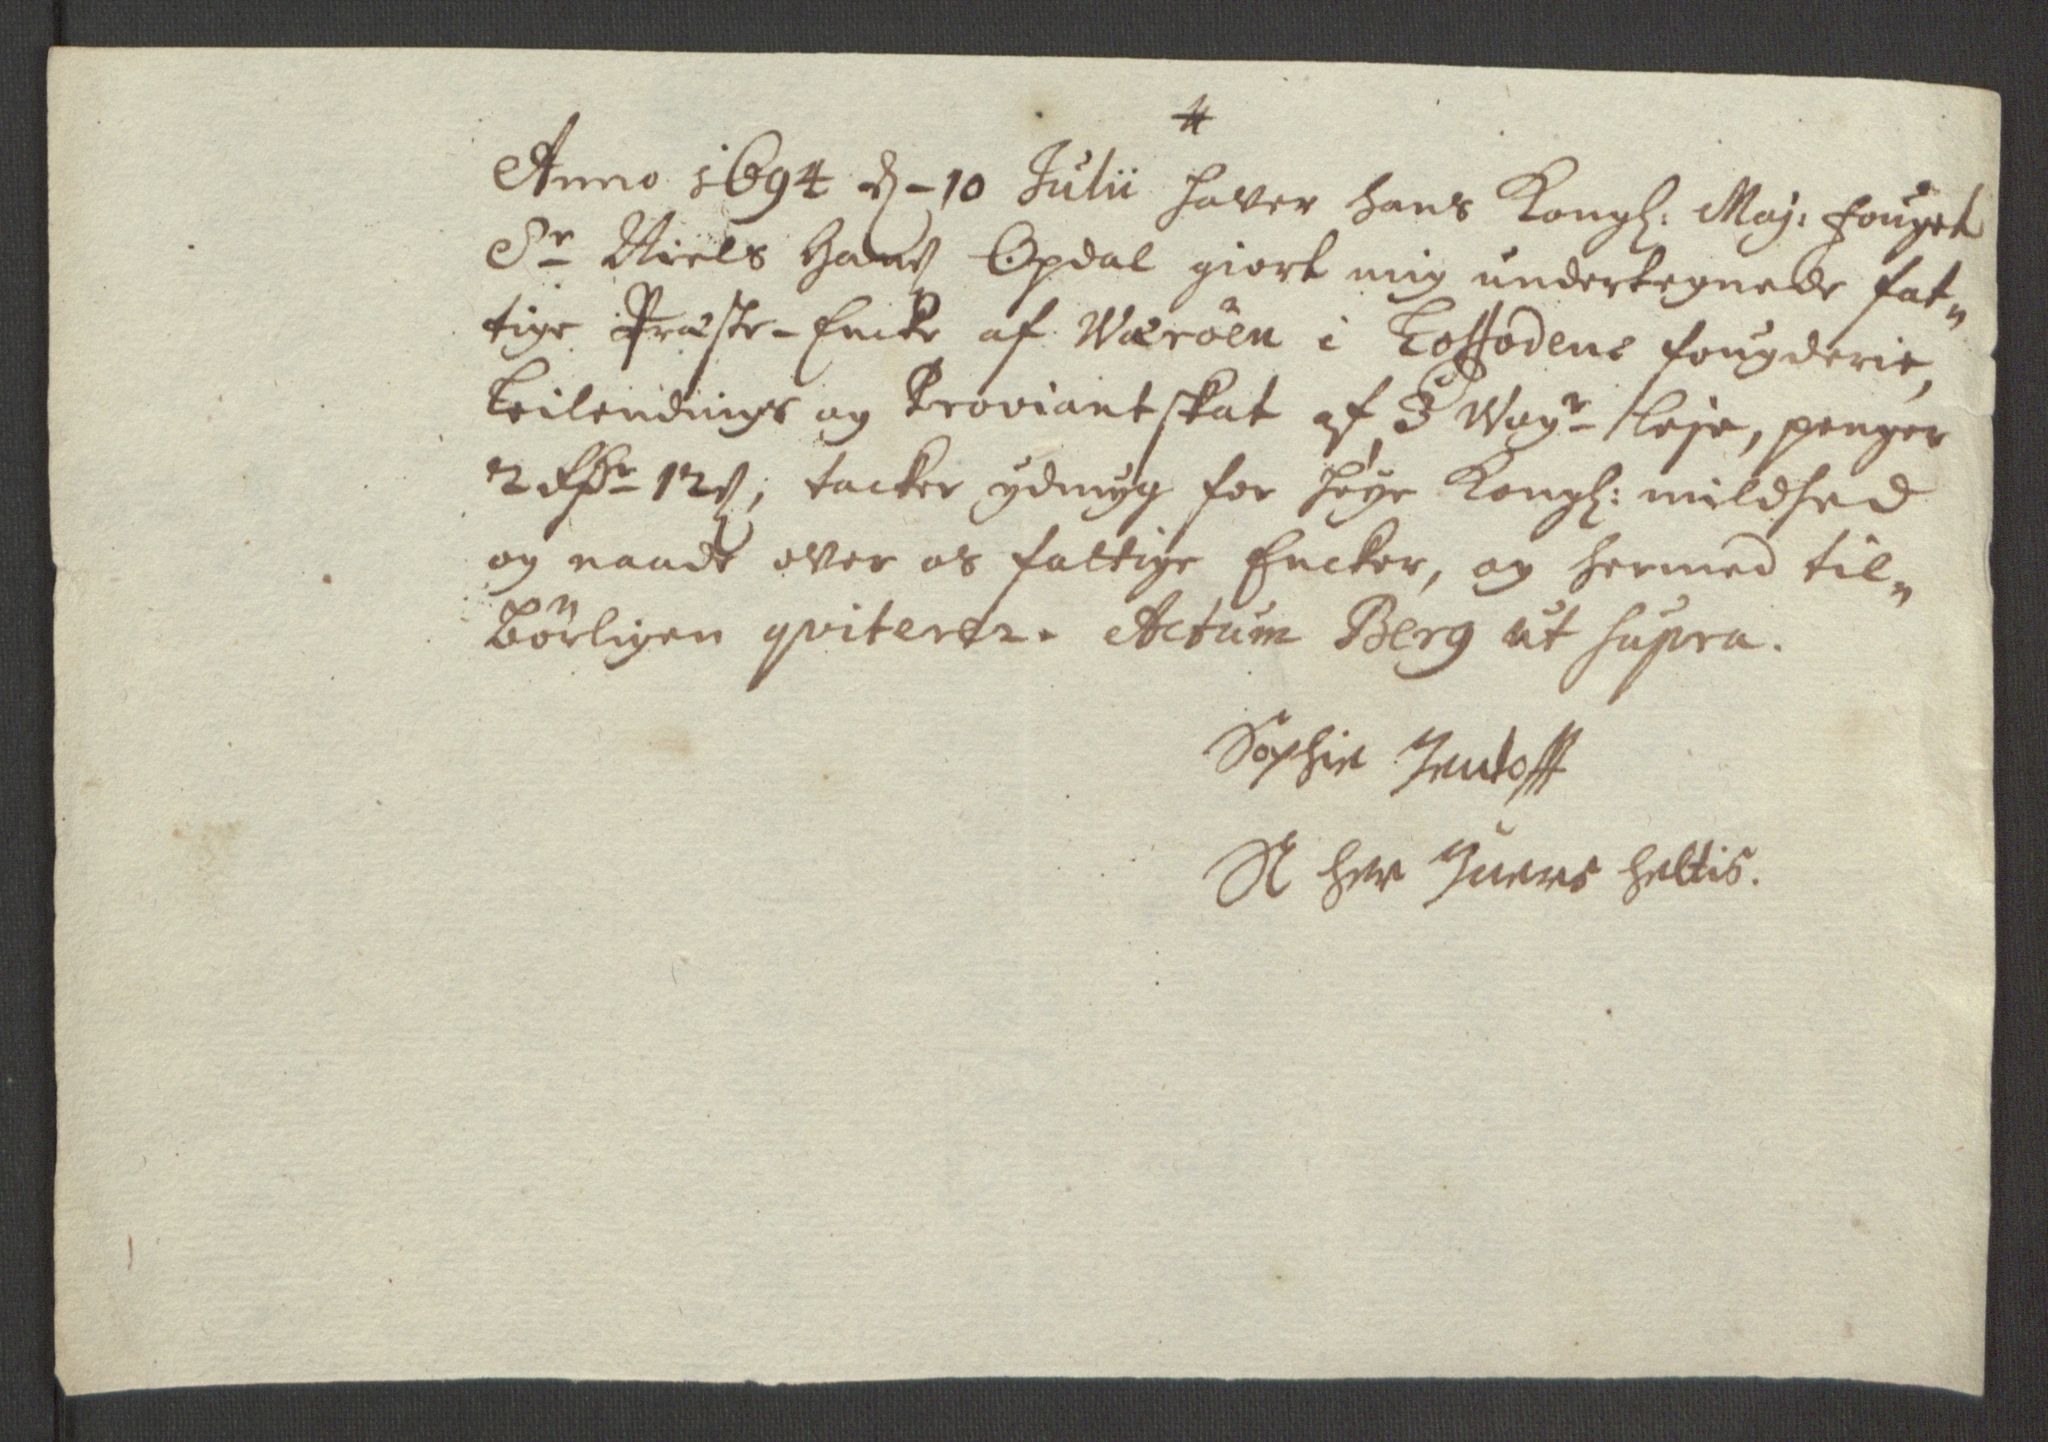 Anno 1694 d. 10 Julii haver hans Kongl: Maj: fouget
Sr Niels Hans Opdal giort mig undertegnede fat„
tige Præste-Encke af Wæröen i Loffodens fougderie,
Leilendings og Proviantskat af 3 Wogr leje, penger
2 Rdr 12 s; tacker ydmyg for høye Kongl: mildhed
og naade over os fattige Encker, og hermed til„
börligen qviterer. Actum Berg ut supra.
Sophie Jentoff
S her Juers heltis.